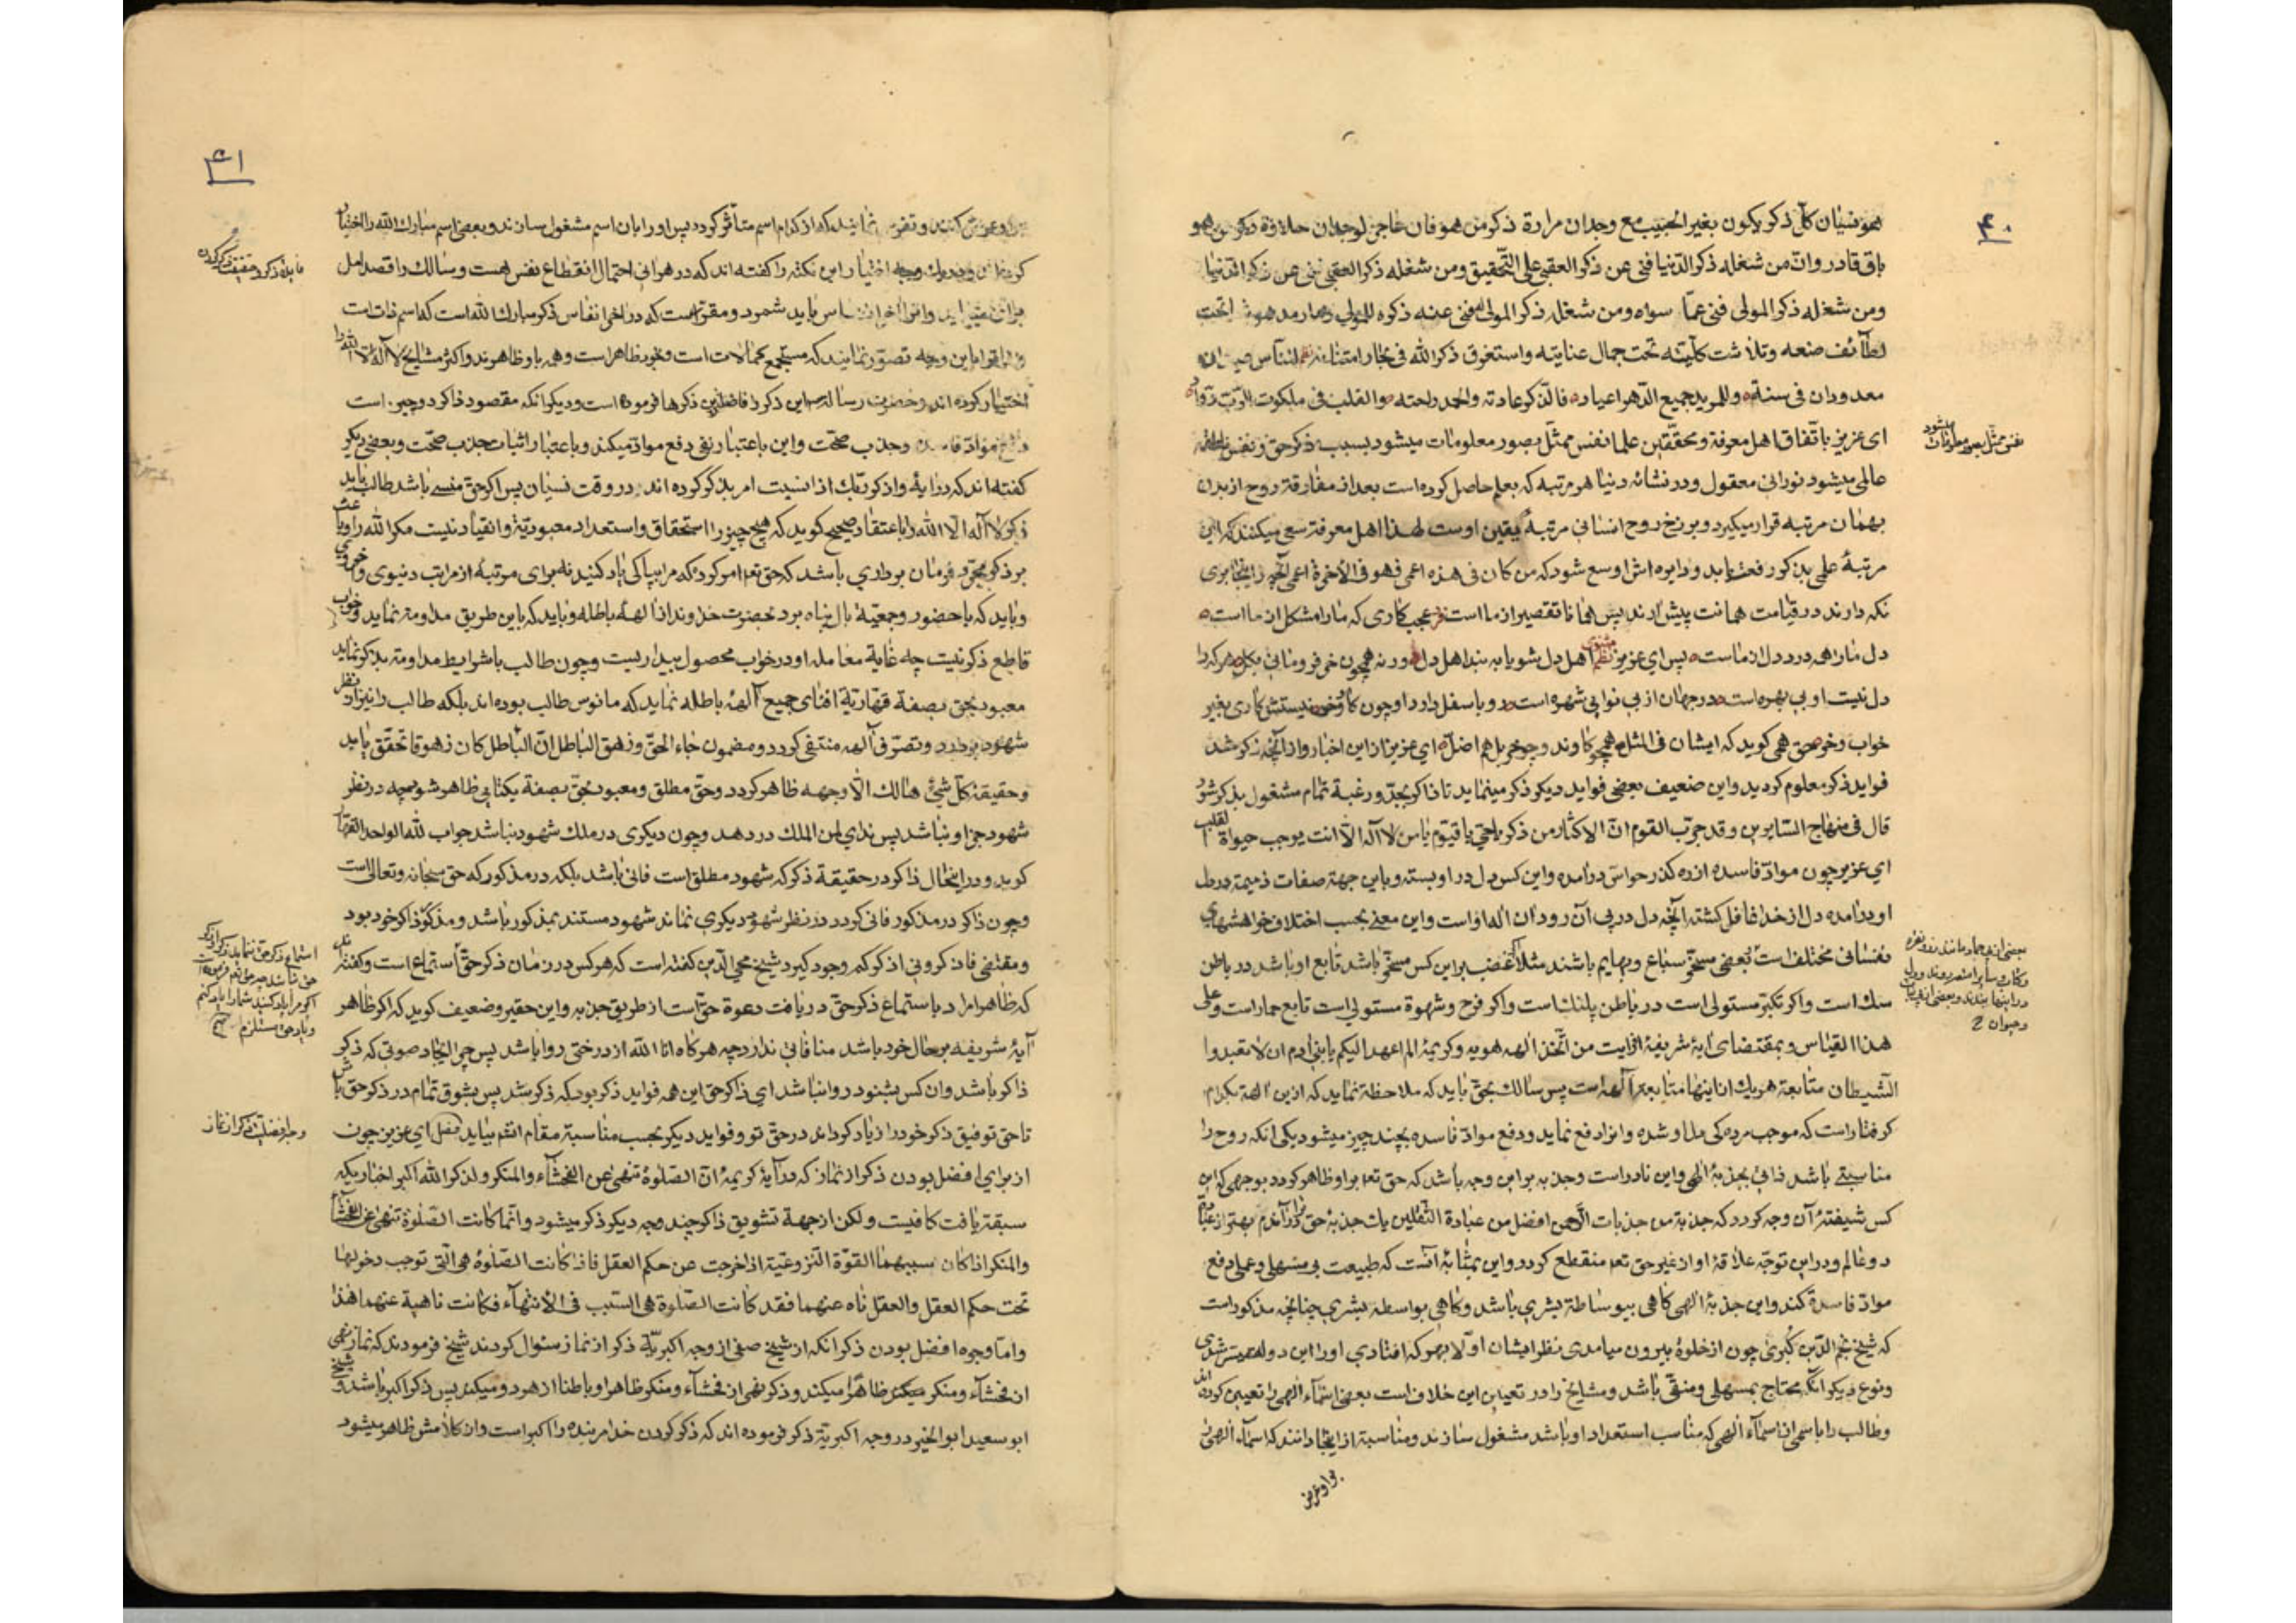 ۴۰
هو نسیان کل ذکر یکون بغیر الحبیب مع وجدان مرارة ذکر من هو فان عاجز لوجدان حلاوة ذکر من هو
باق قادر وان من شغله ذکر الدنیا فنی عن ذکر العقبی علی التحقیق ومن شغله ذکر العقبی فنی عن ذکر الدنیا
ومن شغله ذکر المولی فنی عما سواه ومن شغله ذکر المولی فنی عنه ذکره للمولی وصار مدهوشا تحت
لطائف صنعه وتلاشت کلیته تحت جمال عنایته واستغرق ذکر الله فی بحار امتنانه للناس
معدودان فی سنة وللمرید جمیع الدهر اعیاد فالذکر عادته والحمد راحته والقلب فی ملکوت الرب
ای عزیز باتفاق اهل معرفة ومحققین علما نفس ممثل بصور معلومات میشود بسبب ذکر حق ونفس ناطقه
عالمی میشود نورانی معقول ودر نشائه دنیا هر مرتبه که بعلم حاصل کرده است بعد از مفارقة روح از بدن
بهمان مرتبه قرار میگیرد وبرزخ روح انسانی مرتبهٔ یقین اوست لهذا اهل معرفة سعی میکنند که این
مرتبهٔ علمی بذکر رفعت یابد ودایره اش اوسع شود که من کان فی هذه اعمی فهو فی الآخرة اعمی آنچه
نکه دارند در قیامت همانت پیش آرند پس همانا تقصیر از ما است عجب کاری که مارا مشکل از ما است
دل مارا همه درد دل از ماست پس ای عزیز مثنوی اهل دل شو یا به بند اهل دل ورنه همچون خر فرومانی بکل هر که را
دل نیست او بی بهره است در جهان از بی نوایی شهره است رو باسفل دارد او چون کاو وخر نیستش کاری بغیر
خواب وخور حق همی کوید که ایشان فی المثل همچو کاوند وچو خر بل هم اضل ای عزیز از این اخبار واز آنچه ذکر شد
فواید ذکر معلوم کردید واین ضعیف بعضی فواید دیکر ذکر مینماید تا ذاکر بجد ورغبة تمام مشغول بذکر شود
قال فی منهاج السایرین وقد جرب القوم ان الاکثار من ذکر یاحی یا قیوم یامن لا اله الا انت یوجب حیوة القلب
ای عزیز چون مواد فاسده از ره کذر حواس درآمده واین کس دل در او بسته وباین جهة صفات ذمیمه در دل
او درآمده دل از خدا غافل کشته آنچه دل در پی آن رود ان اله اواست واین معنی بحسب اختلاف خواهشهای
نفسانی مختلف است بعضی مسخر سباع وبهایم باشند مثلا اکر غضب بر این کس مسخر باشد تابع او باشد در باطن
سک است واکر تکبر مستولی است در باطن پلنک است واکر فرح وشهوة مستولی است تابع حمار است وعلی
هذا القیاس وبمقتضای ایهٔ شریفهٔ افرایت من اتخذ الهه هویه وکریمهٔ الم اعهد الیکم یا بنی آدم ان لا تعبدوا
الشیطان متابعة هر یک از اینها متابعة آلهه است پس سالک بحق باید که ملاحظة نماید که از این آلهة بکدام
کرفتار است که موجب مرده کی دل او شده وانرا دفع نماید ودفع مواد فاسده بچند چیز میشود یکی انکه روح را
مناسبتی باشد ذاتی بجذبهٔ الهی واین نادر است وجذبه بر این وجه باشد که حق تعا بر او ظاهر کردد بوجهی که این
کس شیفتهٔ آن وجه کردد که جذبة من جذبات الرحمن افضل من عبادة الثقلین یک جذبهٔ حق
دو عالم ودر این توجه علاقهٔ او از غیر حق تعا منقطع کردد واین بمثابهٔ آنست که طبیعت بی مسهلی وعملی دفع
مواد فاسدة کند واین جذبهٔ الهی کاهی بیوساطة بشری باشد وکاهی بواسطه بشری چنانچه مذکور است
که شیخ نجم الدین کبری چون از خلوة بیرون میامدی نظر ایشان اولا بهر که افتادی اورا این دولت میسر شدی
ونوع دیکر انکه محتاج بمسهلی ومنقی باشد ومشایخ را در تعیین این خلاف است بعضی اسماء الهی را تعیین کرده اند
وطالب را باسمی از اسماء الهی که مناسب استعداد او باشد مشغول سازند ومناسبة از اینجا دانند که اسماء الهی
بر او عرض
نفس ممثل بصور معلومات میشود
وحیوان
۴۱
بر او عرض کنند وتفرس نمایند که از کدام اسم متأثر کردد پس اورا بان اسم مشغول سازند وبعضی اسم مبارک الله را اختیار
کرده اند ووجه اختیار این نکته را کفته اند که در هر انی احتمال انقطاع نفس هست وسالک را قصد
باید شمرد ومقرر است که در اخر انفاس ذکر مبارک الله است که اسم ذات است
باین وجه تصور نمایند که مستجمع کمالات است وبخود ظاهر است وهمه باو ظاهرند واکثر مشایخ لا اله الا الله را
اختیار کرده اند وحضرت رسالة این ذکر را فاضلترین ذکرها فرموده است ودیکر انکه مقصود ذاکر دو چیز است
دفع مواد فاسده وجذب صحت واین باعتبار نفی دفع مواد میکند وباعتبار اثبات جذب صحت وبعضی دیکر
کفته اند که در ایهٔ واذکر ربک اذا نسیت امر بذکر کرده اند در وقت نسیان پس اکر حق منسی باشد طالب باید
ذکر لا اله الا الله را باعتقاد صحیح کوید که هیچ چیز را استحقاق واستعداد معبودیة وانقیاد نیست مکر الله را وباعث
بر ذکر مجرد فرمان برداری باشد که حق تعا امر کرد که مرا بپاکی یاد کنید نه برای مرتبهٔ از مراتب دنیوی واخروی
وباید که باحضور وجمعیة بال پناه برد بحضرت خداوند از آلههٔ باطله وباید که باین طریق مداومة نماید وخواب
قاطع ذکر نیست چه غایة معامله او در خواب محصول بیداریست وچون طالب باشرایط مداومة بذکر نماید
معبود بحق بصفة قهاریة افنای جمیع آلههٔ باطله نماید که مانوس طالب بوده اند بلکه طالب را نیز از نظر
شهود ببرد وتصرف آلهه منتفی کردد ومضمون جاء الحق وزهق الباطل ان الباطل کان زهوقا تحقق یابد
وحقیقة کل شیئ هالک الا وجهه ظاهر کردد وحق مطلق ومعبود بحق بصفة یکتایی ظاهر شود چه در نظر
شهود جز او نباشد پس ندای لمن الملک در دهد وچون دیکری در ملک شهود نباشد جواب لله الواحد القهار
کوید ودر اینحال ذاکر در حقیقة ذکر که شهود مطلق است فانی باشد بلکه در مذکور که حق سبحانه وتعالی است
وچون ذاکر در مذکور فانی کردد در نظر شهود دیکری نماند شهود مستند بمذکور باشد ومذکور ذاکر خود بود
ومقتضی فاذکرونی اذکرکم وجود کیرد شیخ محی الدین کفته است که هر کس در زمان ذکر حق استماع است وکفته
که ظاهرا مراد باستماع ذکر حق دریافت دعوة حق است از طریق جذبه واین حقیر وضعیف کوید که اکر ظاهر
آیهٔ شریفه بر حال خود باشد منافاتی ندارد چه هرکاه انا الله از درختی روا باشد پس چرا ایجاد صوتی که ذکر
ذاکر باشد وان کس بشنود روا نباشد ای ذاکر حق این همه فواید ذکر بود که ذکر شد پس بشوق تمام در ذکر حق باش
تا حق توفیق ذکر خود را زیاد کرداند در حق تو وفواید دیکر بحسب مناسبة مقام انشم بیاید فصل ای عزیز چون
از برای افضل بودن ذکر از نماز که در آیهٔ کریمهٔ ان الصلوة تنهی عن الفحشاء والمنکر ولذکر الله اکبر اخباریکه
سبقة یافت کافیست ولکن از جهة تشویق ذاکر چند وجه دیکر ذکر میشود وانما کانت الصلوة تنهی عن الفحشاء
والمنکر اذ کان سببهما القوة النزوعیة اذا خرجت عن حکم العقل فاذ کانت الصلوة هی التی توجب دخولها
تحت حکم العقل والعقل ناه عنهما فقد کانت الصلوة هی السبب فی الانتهاء فکانت ناهیة عنهما هذا
واما وجوه افضل بودن ذکر انکه از شیخ صفی از وجه اکبریة ذکر از نماز سئوال کردند شیخ فرمودند که نماز نهی
از فحشاء ومنکر ظاهرا میکند وذکر نهی از فحشاء ومنکر ظاهرا وباطنا از هر دو میکند پس ذکر اکبر باشد وشیخ
ابو سعید ابو الخیر در وجه اکبریة ذکر فرموده اند که ذکر کردن خدا مر بنده را اکبر است واز کلامش ظاهر میشود
وجه افضلیت ذکر از نماز